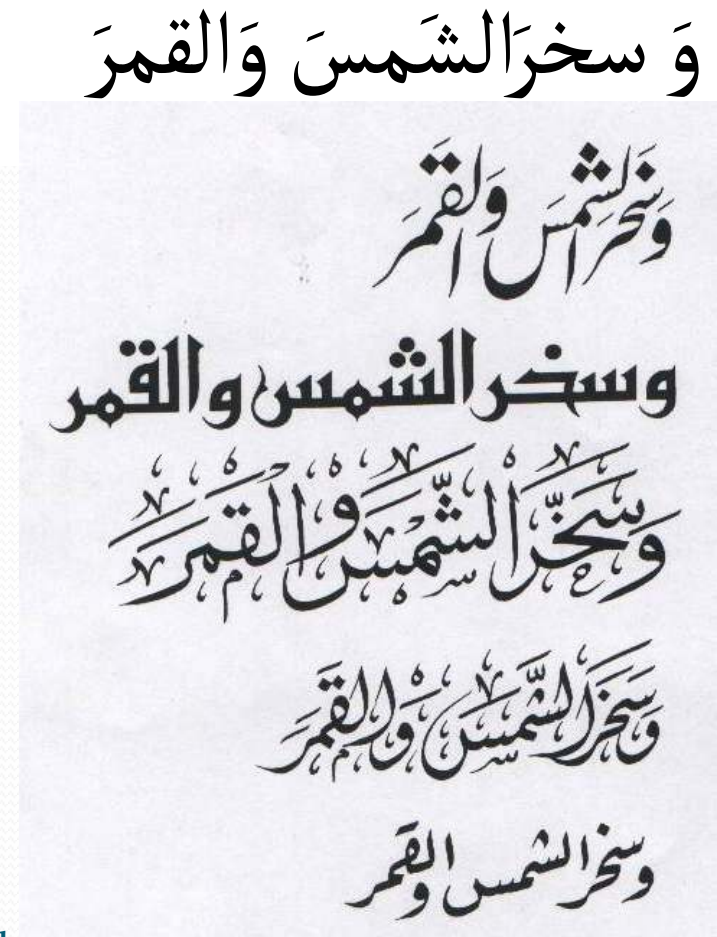 وَ سخرَالشَمسَ وَالقمرَ
وَسَخَرَ الشمسَ وَالقَمَرَ
وسخر الشمس والقمر
وَسَخَّرَ الشَّمْسَ وَالْقَمَرَ
وَسَخَرَ الشَّمسَ وَالْقَمَرَ
وسخر الشمس والقمر